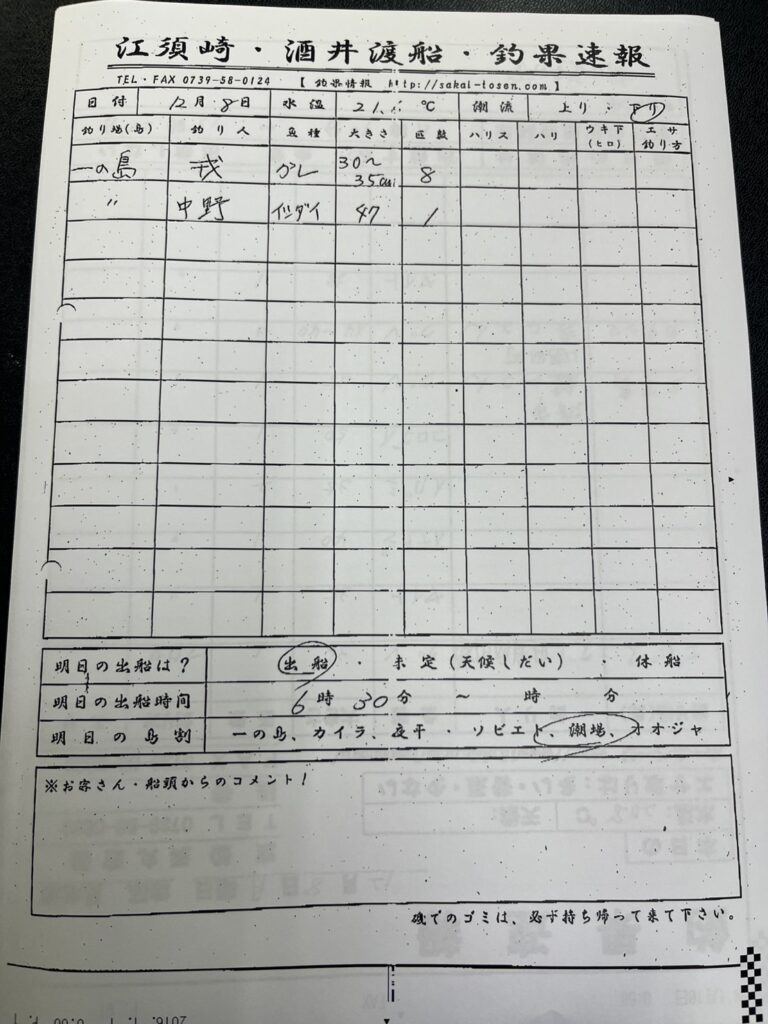 江須崎・酒井渡船・釣果速報
TEL・FAX 0739-58-0124 【 釣果情報 http://sakai-tosen.com 】
日付 12月 8日 水温 21. ℃ 潮流 上り : 下り
釣り場(島) 釣り人 魚種 大きさ 匹数 ハリス ハリ ウキ下(ヒロ) エサ釣り方
一の島 戎 グレ 30〜35cm 8
〃 中野 イシダイ 47 1
明日の出船は? 出船 ・ 未定(天候しだい) ・ 休船
明日の出船時間 6時 30分 〜 時 分
明日の島割 一の島、カイラ、夜干 ・ ソビエト、潮場、オオジャ
※お客さん・船頭からのコメント!
磯でのゴミは、必ず持ち帰って来て下さい。